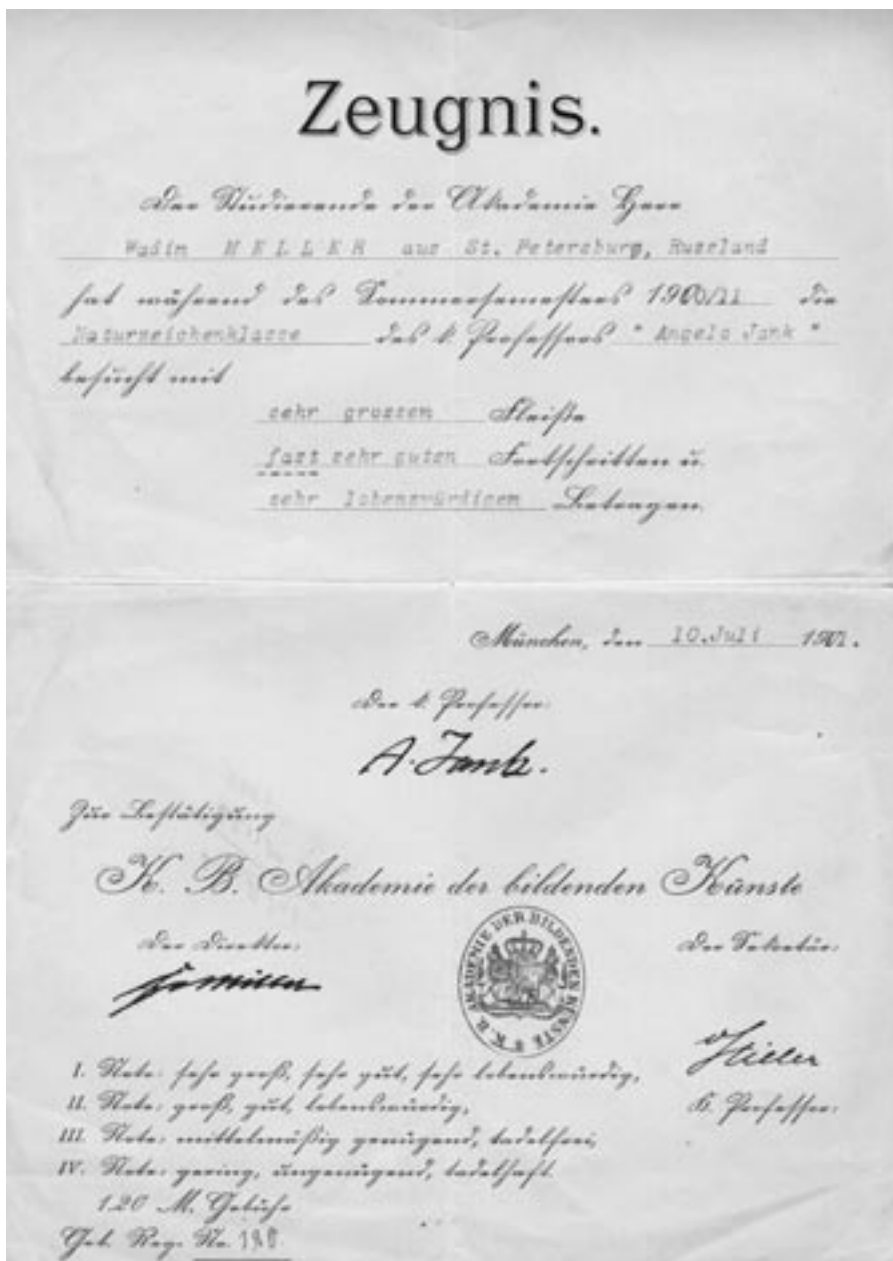 Zeugnis.
Der Studierende der Akademie Herr
Wadim MELLER aus St. Petersburg, Russland
hat während des Sommersemesters 1910/11 die
Naturzeichenklasse des k. Professors "Angelo Jank"
besucht mit
sehr grossen Fleiße
fast sehr guten Fortschritten u.
sehr lobenswürdigem Betragen.
München, den 10.Juli 1911.
Der k. Professor:
A. Jank.
Zur Bestätigung
K. B. Akademie der bildenden Künste
Der Direktor:
Der Sekretär:
K. B. AKADEMIE DER BILDENDEN KÜNSTE
I. Note: sehr groß, sehr gut, sehr lobenswürdig,
II. Note: groß, gut, lobenswürdig,
K. Professor:
III. Note: mittelmäßig genügend, tadelfrei,
IV. Note: gering, ungenügend, tadelhaft.
1.20 M. Gebühr
Geb. Reg. No.